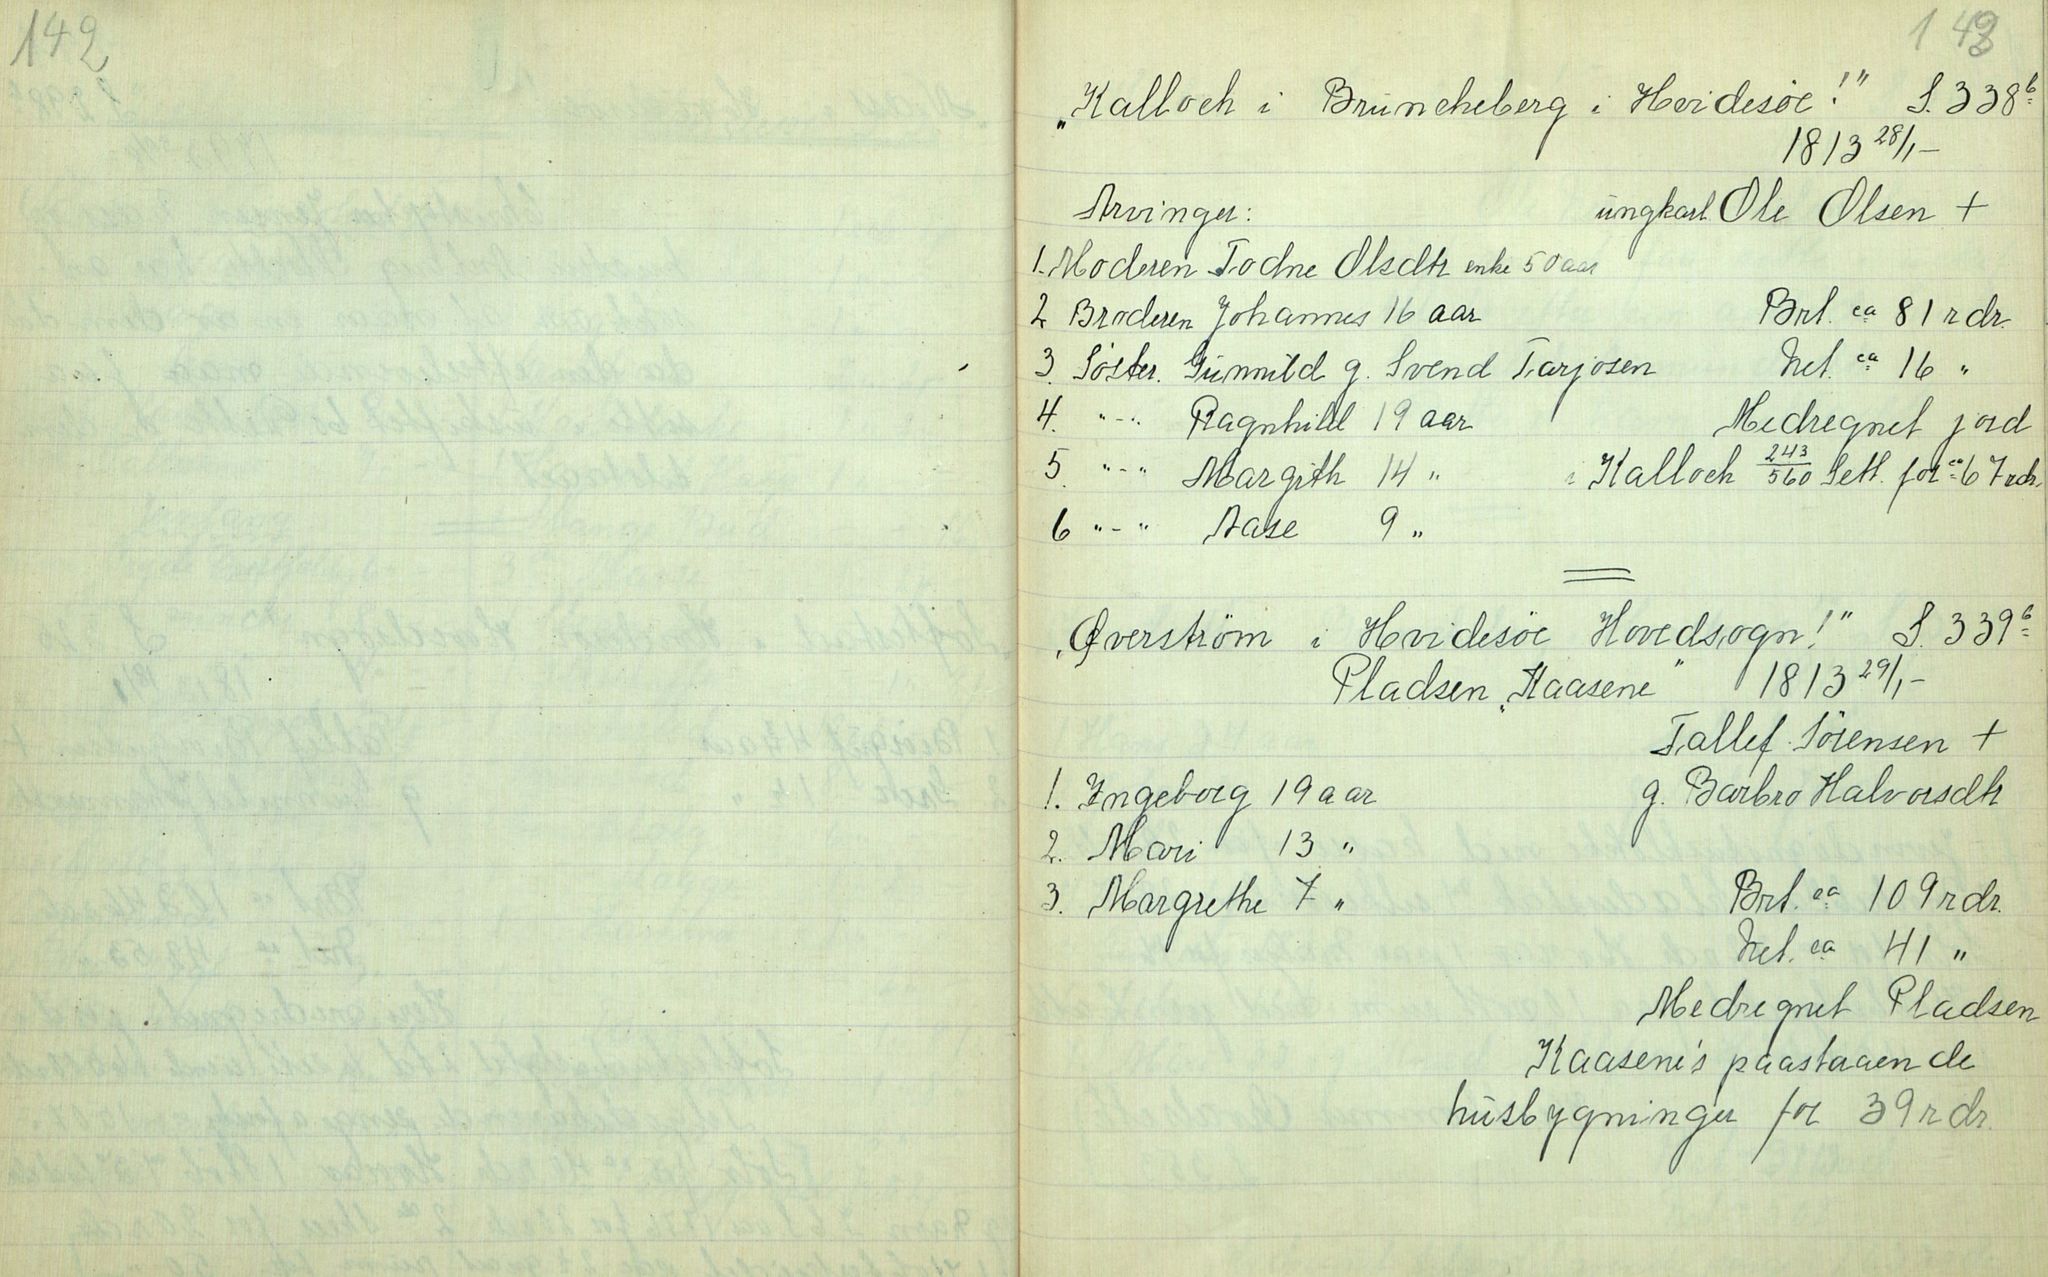 142
143
„Kalloch i Brüncheberg i Hvidesöe!" S. 338b
1813 28/1-
Arvinger: üngkarl Ole Olsen +
1. Moderen Todne Olsdtr enke 50 aar
2 Broderen Johannes 16 aar Brt. ca 81 rdr.
3. Söster. Günnild g. Svend Tarjosen Net. ca 16 "
4. "-" Ragnhild 19 aar Medregnet jord
5. "-" Margith 14 " i Kalloch 243/560 Sett. for ca 67 rdr.
6 "-" Aase 9 "
„Øverström i Hvidesöe Hovedsogn!" S. 339b
Pladsen „Kaasene" 1813 29/1-
Tallef Sörensen +
1. Ingeborg 19 aar g. Barbro Halvorsdtr
2. Mari 13 "
3. Margrethe 7 " Brt. ca 109 rdr.
Net. ca 41 "
Medregnet Pladsen
Kaasene's paastaaende
hüsbygninger for 39 rdr.